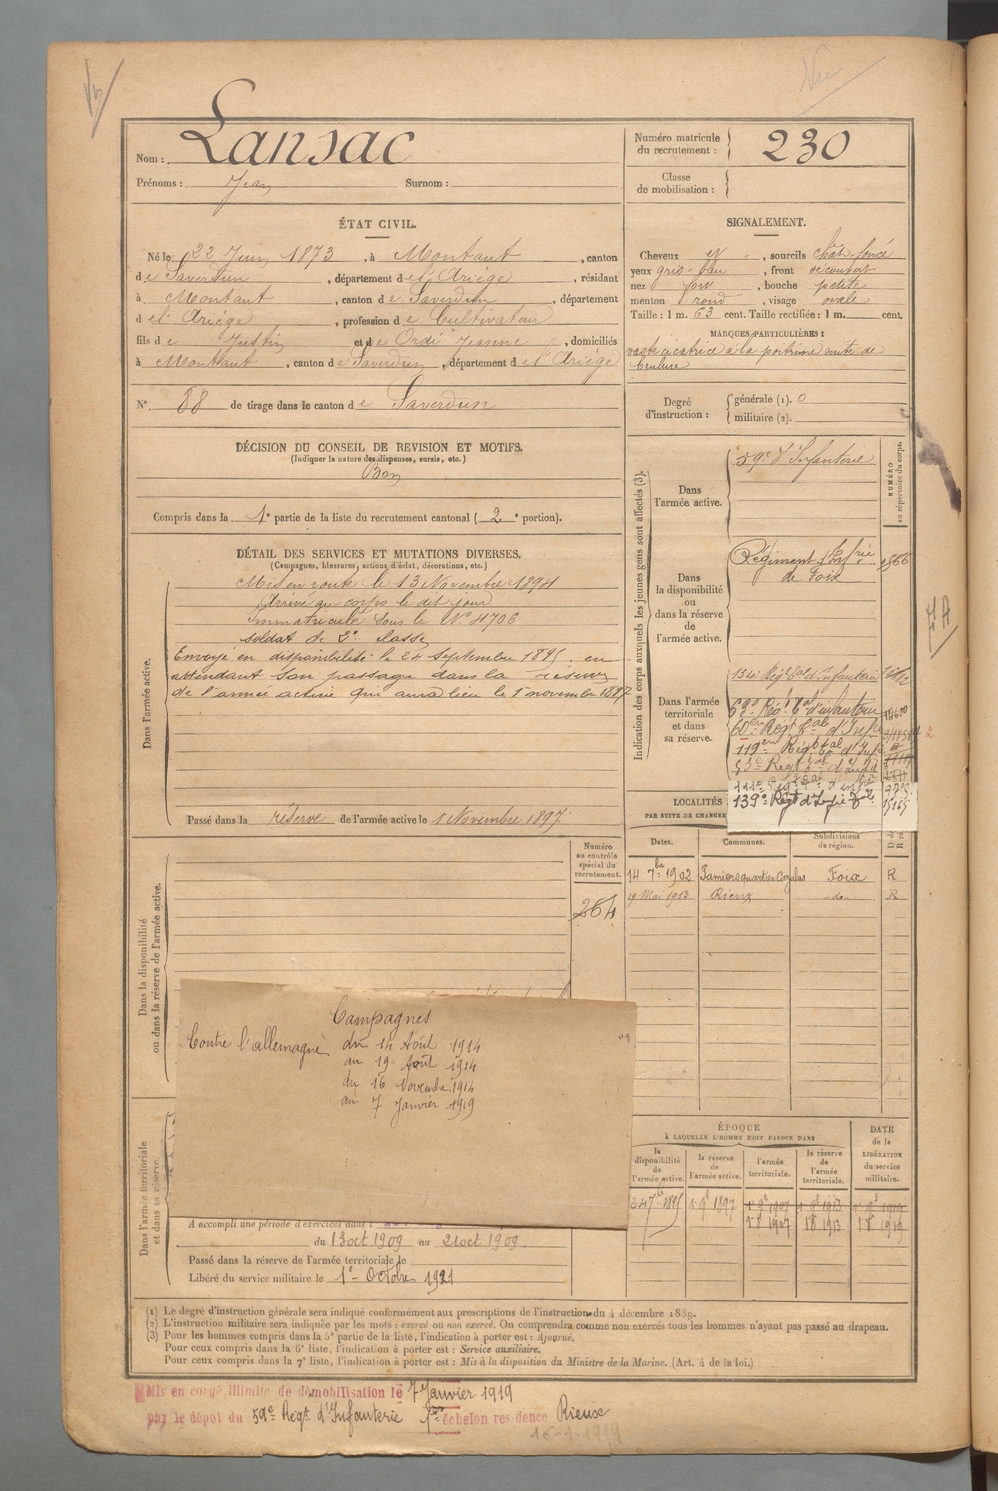 Nom : Lansac
Prénoms : Jean Surnom :
Numéro matricule du recrutement : 230
Classe de mobilisation :
ÉTAT CIVIL.
Né le 22 Juin 1873, à Montaut, canton
de Saverdun, département de l'Ariège, résidant
à Montaut, canton de Saverdun, département
d el'Ariège, profession de Cultivateur
fils de Justin et de Ordi Jeanne, domiciliés
à Montaut, canton de Saverdun, département de l'Ariège
N° 88 de tirage dans le canton de Saverdun
SIGNALEMENT.
Cheveux et, sourcils chât. foncé
yeux gris-bleu, front découvert
nez fort, bouche petite
menton rond, visage ovale
Taille : 1 m. 63 cent. Taille rectifiée : 1 m. cent.
MARQUES PARTICULIÈRES :
vaste cicatrice à la poitrine suite de
brulure
Degré d'instruction : générale (1). 0
militaire (2).
DÉCISION DU CONSEIL DE REVISION ET MOTIFS.
(Indiquer la nature des dispenses, sursis, etc.)
Bon
Compris dans la 1e partie de la liste du recrutement cantonal (2e portion).
DÉTAIL DES SERVICES ET MUTATIONS DIVERSES.
(Campagnes, blessures, actions d'éclat, décorations, etc.)
Dans l'armée active.
Mis en route le 13 Novembre 1894
Arrivé au corps le dit jour
Immatriculé sous le N° 4706
soldat de 2e classe
Envoyé en disponibilité le 24 Septembre 1895, en
attendant son passage dans la réserve
de l'armée active qui aura lieu le 1er novembre 1897
Passé dans la réserve de l'armée active le 1 Novembre 1897
Indication des corps auxquels les jeunes gens sont affectés (3).
NUMÉRO au répertoire du corps.
Dans l'armée active.
59e d'Infanterie
Dans la disponibilité ou dans la réserve de l'armée active.
Régiment Infrie
de Foix
Dans l'armée territoriale et dans sa réserve.
134e Régt tal d'infanterie
63e Régt tal d'infanterie
60e Régt tal d'Infie
119e Régt tal d'Inf
53e Régt tal d'Infie
139e Régt d'Infie tle 15165
LOCALITÉS
PAR SUITE DE CHANGEM
Dates. Communes. Subdivisions de région.
14 7bre 1902 Pamiers quartier Foix R
19 Mai 1913 Rieux do R
Numéro au contrôle spécial du recrutement.
264
Dans la disponibilité ou dans la réserve de l'armée active.
Campagnes
Contre l'allemagne du 14 Août 1914
au 19 Août 1914
du 16 Novembre 1914
au 7 Janvier 1919
ÉPOQUE
À LAQUELLE L'HOMME DOIT PASSER DANS
la disponibilité de l'armée active. la réserve de l'armée active. l'armée territoriale. la réserve de l'armée territoriale.
DATE de la LIBÉRATION du service militaire.
24 7bre 1895 1 9bre 1897 1 9bre 1907 1 9bre 1913 1 9bre 1919
1 8 1907 1 8 1913 1 8 1919
Dans l'armée territoriale et dans sa réserve.
A accompli une période d'exercices dans
du 13 oct 1909 au 21 oct 1909
Passé dans la réserve de l'armée territoriale le
Libéré du service militaire le 1er Octobre 1921
(1) Le degré d'instruction générale sera indiqué conformément aux prescriptions de l'instruction du 4 décembre 1889.
(2) L'instruction militaire sera indiquée par les mots : exercé ou non exercé. On comprendra comme non exercés tous les hommes n'ayant pas passé au drapeau.
(3) Pour les hommes compris dans la 5e partie de la liste, l'indication à porter est : Ajourné.
Pour ceux compris dans la 6e liste, l'indication à porter est : Service auxiliaire.
Pour ceux compris dans la 7e liste, l'indication à porter est : Mis à la disposition du Ministre de la Marine. (Art. 4 de la loi.)
Mis en congé illimité de démobilisation le 7 Janvier 1919
par le dépôt du 59e Régt d'Infanterie 1er échelon residence Rieux